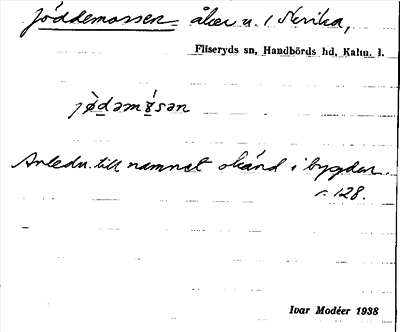 Jöddemossen åker u. 1 Skrika,
Fliseryds sn, Handbörds hd, Kalm. l.
Anledn. till namnet okänd i bygden.
s. 128.
Ivar Modéer 1938